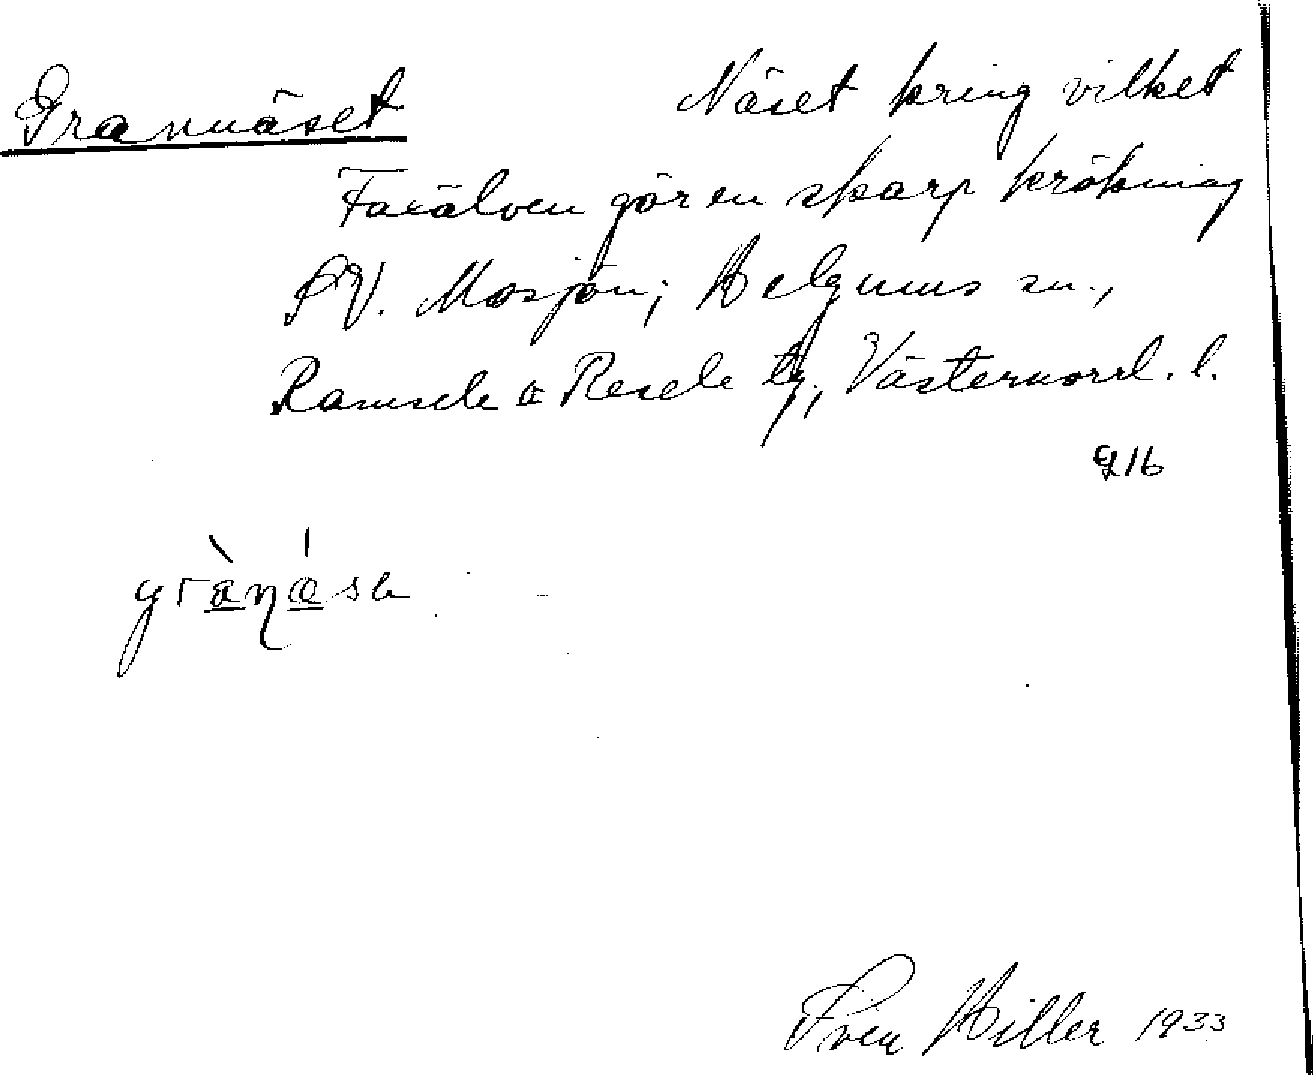 Grannäset
Näset kring vilket
Faxälven gör en skarp krökning
SV. Mosjön; Helgums sn.,
Ramsele o Resele tg, Västernorrl. l.
G16
Sven Hiller 1933